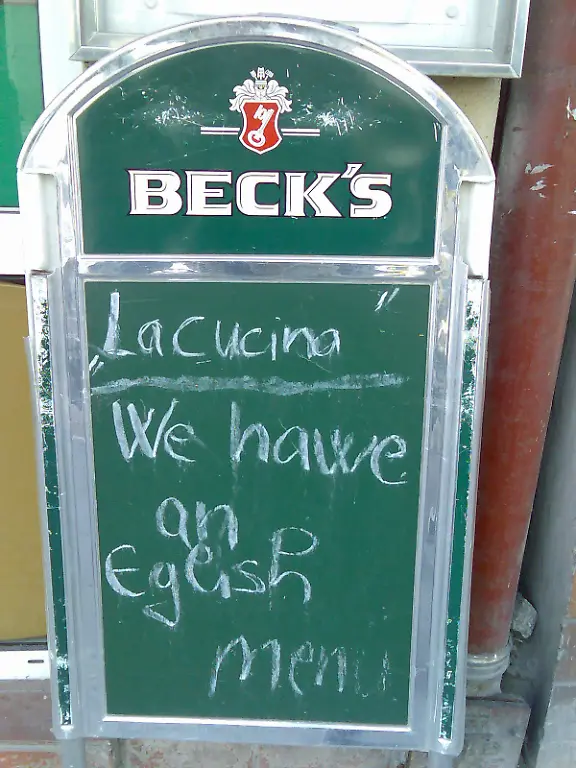 BECK'S
„La Cucina"
We hawe
an
Eglish
menu